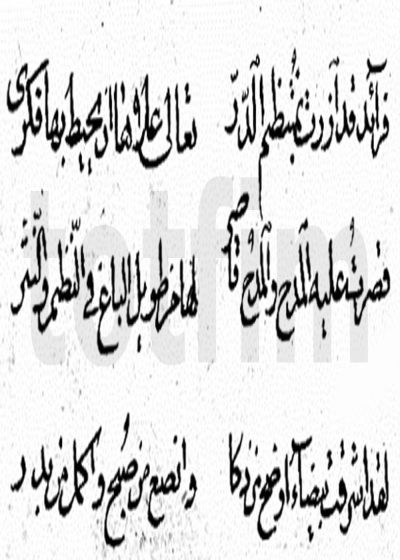 فرآئد قد أزرت بمنتظم الدّرّ تعالى علاها ان يحيط بها فكرى
قصرتُ عليه المدح والمدحُ قاصر طويل الباع في النّظم والنّثر
لقد اشرقت بيضآء اوضح من ذكا وانصع من صُبح واكمل من بدر
totfim